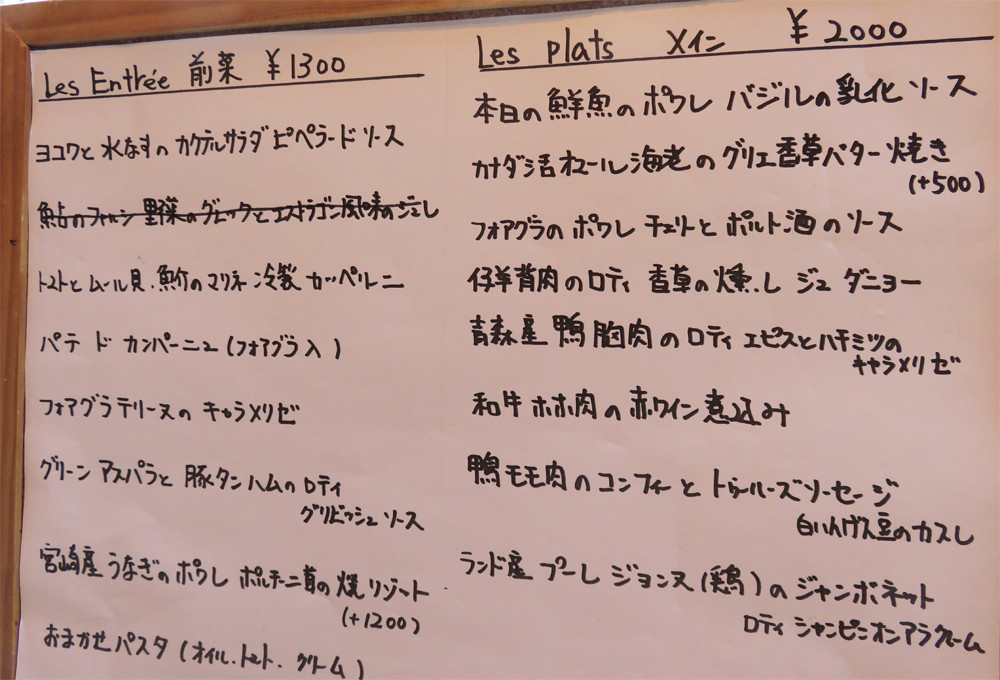 Les Entrée 前菜 ¥1300
ヨコワと水なすのカクテルサラダ ピペラードソース
鮎のファルシ 野菜のグレックとエストラゴン風味のジュレ
トマトとムール貝、魚介のマリネ 冷製カッペリーニ
パテ ド カンパーニュ(フォアグラ入)
フォアグラテリーヌのキャラメリゼ
グリーンアスパラと豚タンハムのロティ
グリビッシュソース
宮崎産うなぎのポワレ ポルチーニ茸の焼リゾット
(+1200)
おまかせパスタ(オイル、トマト、クリーム)
Les plats メイン ¥2000
本日の鮮魚のポワレ バジルの乳化ソース
カナダ活オマール海老のグリエ香草バター焼き
(+500)
フォアグラのポワレ チェリーとポルト酒のソース
仔羊背肉のロティ 香草の燻し ジュ ダニョー
青森産 鴨胸肉のロティ エピスとハチミツの
キャラメリゼ
和牛ホホ肉の赤ワイン煮込み
鴨モモ肉のコンフィーとトゥールーズソーセージ
白いんげん豆のカスレ
ランド産 プーレ ジョンヌ(鶏)のジャンボネット
ロティ シャンピニオンアラクレーム